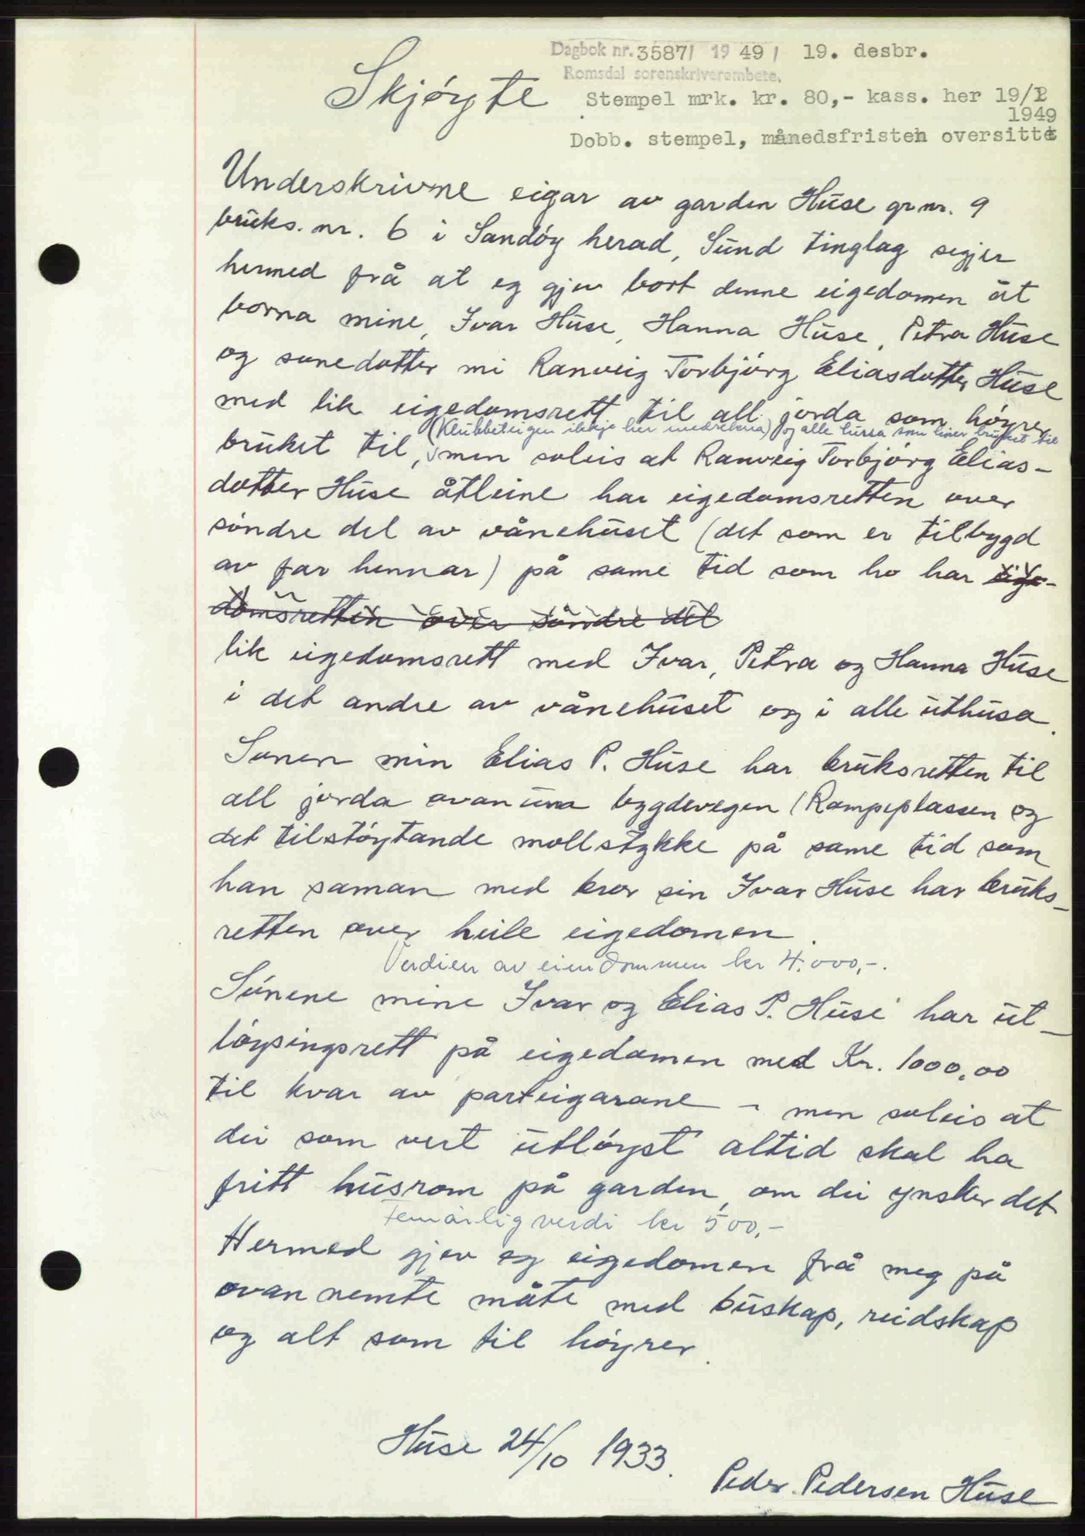 Dagbok nr. 3587/ 19 49 / 19. desbr.
Romsdal sorenskriverembete.
Skjøyte
Stempel mrk. kr. 80,- kass. her 19/12
1949
Dobb. stempel, månedsfristen oversittet
Underskrivne eigar av garden Huse gr.nr. 9
bruks. nr. 6 i Sandøy herad, Sund tinglag segjer
hermed frå at eg gjev bort denne eigedomen åt
borna mine, Ivar Huse, Hanna Huse, Petra Huse
og sonedotter mi Ranveig Torbjørg Eliasdotter Huse
med lik eigedomsrett til all jorda som høyrer
(Klubbeteigen ikkje her medrekna) og alle husa som høyrer bruket til
bruket til, men soleis at Ranveig Torbjørg Elias-
dotter Huse åtleine har eigedomsretten over
søndre del av vånehuset (det som er tilbygd
av far hennar) på same tid som ho har eige-
domsretten over søndre del
lik eigedomsrett med Ivar, Petra og Hanna Huse
i det andre av vånehuset og i alle uthusa.
Sonen min Elias P. Huse har bruksretten til
all jorda ovanum bygdevegen (Rampeplassen og
det tilstøytande mollstykke på same tid som
han saman med bror sin Ivar Huse har bruks-
retten over heile eigedomen.
Verdien av eiendommen kr 4.000,-.
Sønene mine Ivar og Elias P. Huse har ut-
løysingsrett på eigedomen med Kr. 1000,00
til kvar av parteigarane - men soleis at
dei som vert utløyst altid skal ha
fritt husrom på garden, om dei ynsker det
Femårlig verdi kr 500,-
Hermed gjev eg eigedomen frå meg på
ovan nemte måte med buskap, reidskap
og alt som til høyrer.
Huse 24/10 1933.
Peder Pedersen Huse